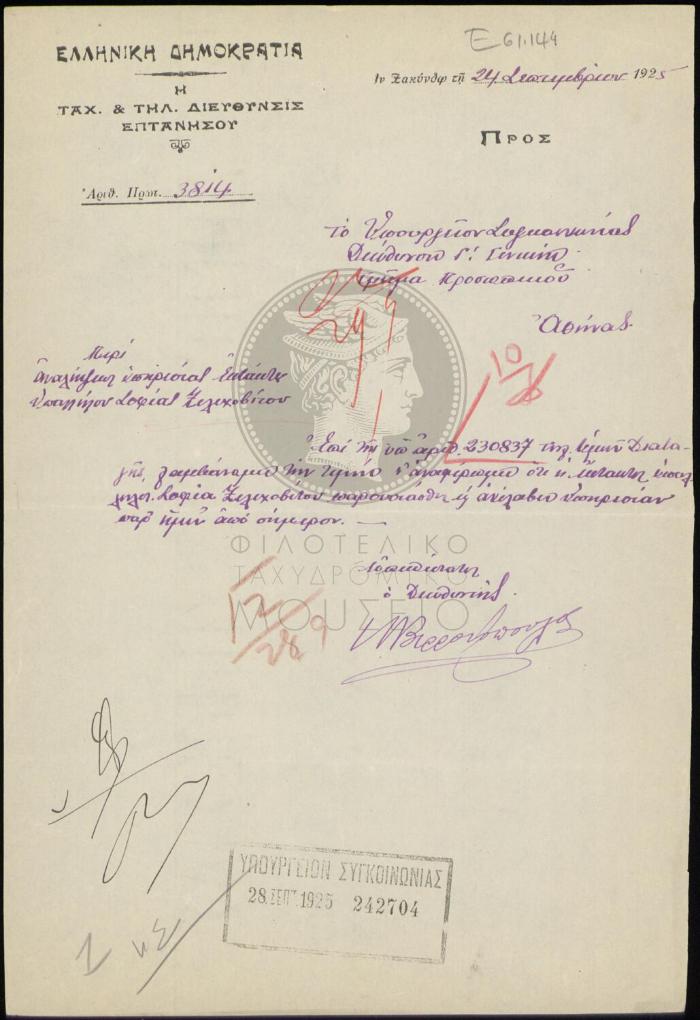 Ε 61.144
ΕΛΛΗΝΙΚΗ ΔΗΜΟΚΡΑΤΙΑ
Η
ΤΑΧ. & ΤΗΛ. ΔΙΕΥΘΥΝΣΙΣ
ΕΠΤΑΝΗΣΟΥ
Ἀριθ. Πρωτ. 3814
Ἐν Ζακύνθῳ τῇ 24 Σεπτεμβρίου 1925
ΠΡΟΣ
Τὸ Ὑπουργεῖον Συγκοινωνίας
Διεύθυνσιν Γ΄ Γενικὴν
Τμῆμα Προσωπικοῦ
Ἀθήνας
Περὶ
ἀναλήψεως ὑπηρεσίας ἐκτάκτου
ὑπαλλήλου Σοφίας Ζελεχοβίτου
Ἐπὶ τῆς ὑπ' ἀριθ. 230837 τηλ. ὑμῶν Διατα-
γῆς, λαμβάνομεν τὴν τιμὴν ν' ἀναφέρωμεν ὅτι ἡ ἔκτακτος ὑπάλ-
ληλος Σοφία Ζελεχοβίτου παρουσιάσθη καὶ ἀνέλαβεν ὑπηρεσίαν
παρ' ἡμῖν ἀπὸ σήμερον.
Εὐπειθέστατος
ὁ Διευθυντὴς
10
12
28 9
ΦΙΛΟΤΕΛΙΚΟ
ΤΑΧΥΔΡΟΜΙΚΟ
ΜΟΥΣΕΙΟ
ΥΠΟΥΡΓΕΙΟΝ ΣΥΓΚΟΙΝΩΝΙΑΣ
28.ΣΕΠΤ.1925 242704